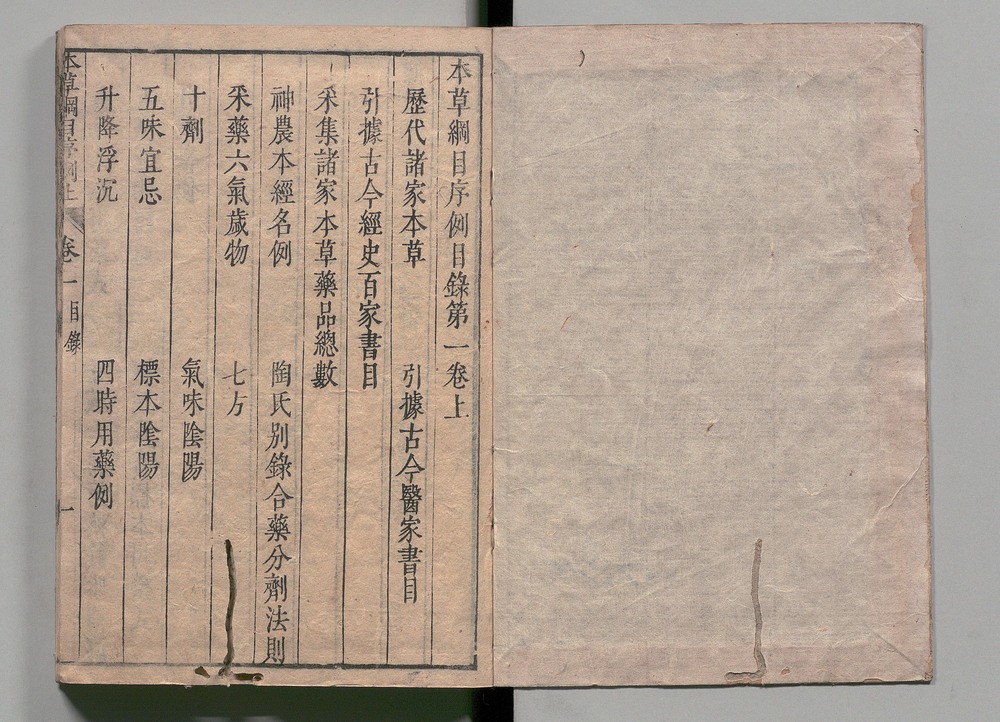 本草綱目序例目錄第一卷上
歷代諸家本草　引據古今醫家書目
引據古今經史百家書目
采集諸家本草藥品總數
神農本經名例　陶氏別錄合藥分劑法則
采藥六氣歲物　七方
十劑　氣味陰陽
五味宜忌　標本陰陽
升降浮沉　四時用藥例
本草綱目序例上　卷一目錄　一